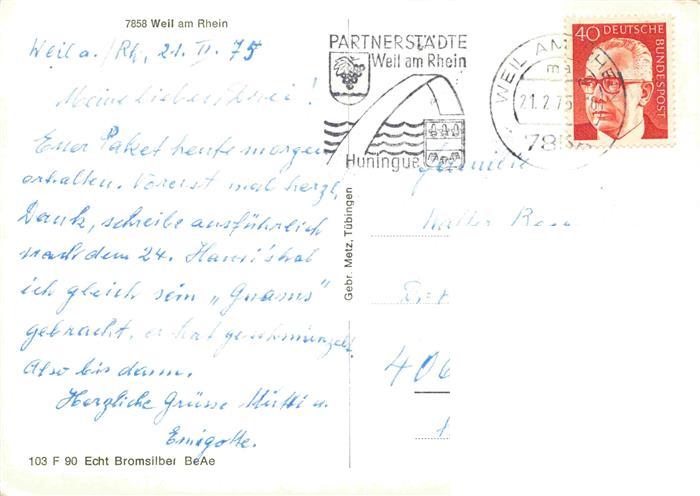 7858 Weil am Rhein
Weil a./Rh, 21. II. 75
Meine lieben Drei!
Euer Paket heute morgen
erhalten. Vorerst mal herzl.
Dank, schreibe ausführlich
nach dem 24. hab
ich gleich sein „
gebracht, er hat geschmunzelt
Also bis dann.
Herzliche Grüsse Mutti u.
103 F 90 Echt Bromsilber BeAe
Gebr. Metz, Tübingen
PARTNERSTÄDTE
Weil am Rhein
Huningue
WEIL AM RHEIN
21.2.75
7858
40 DEUTSCHE BUNDESPOST
Familie
Walter
406